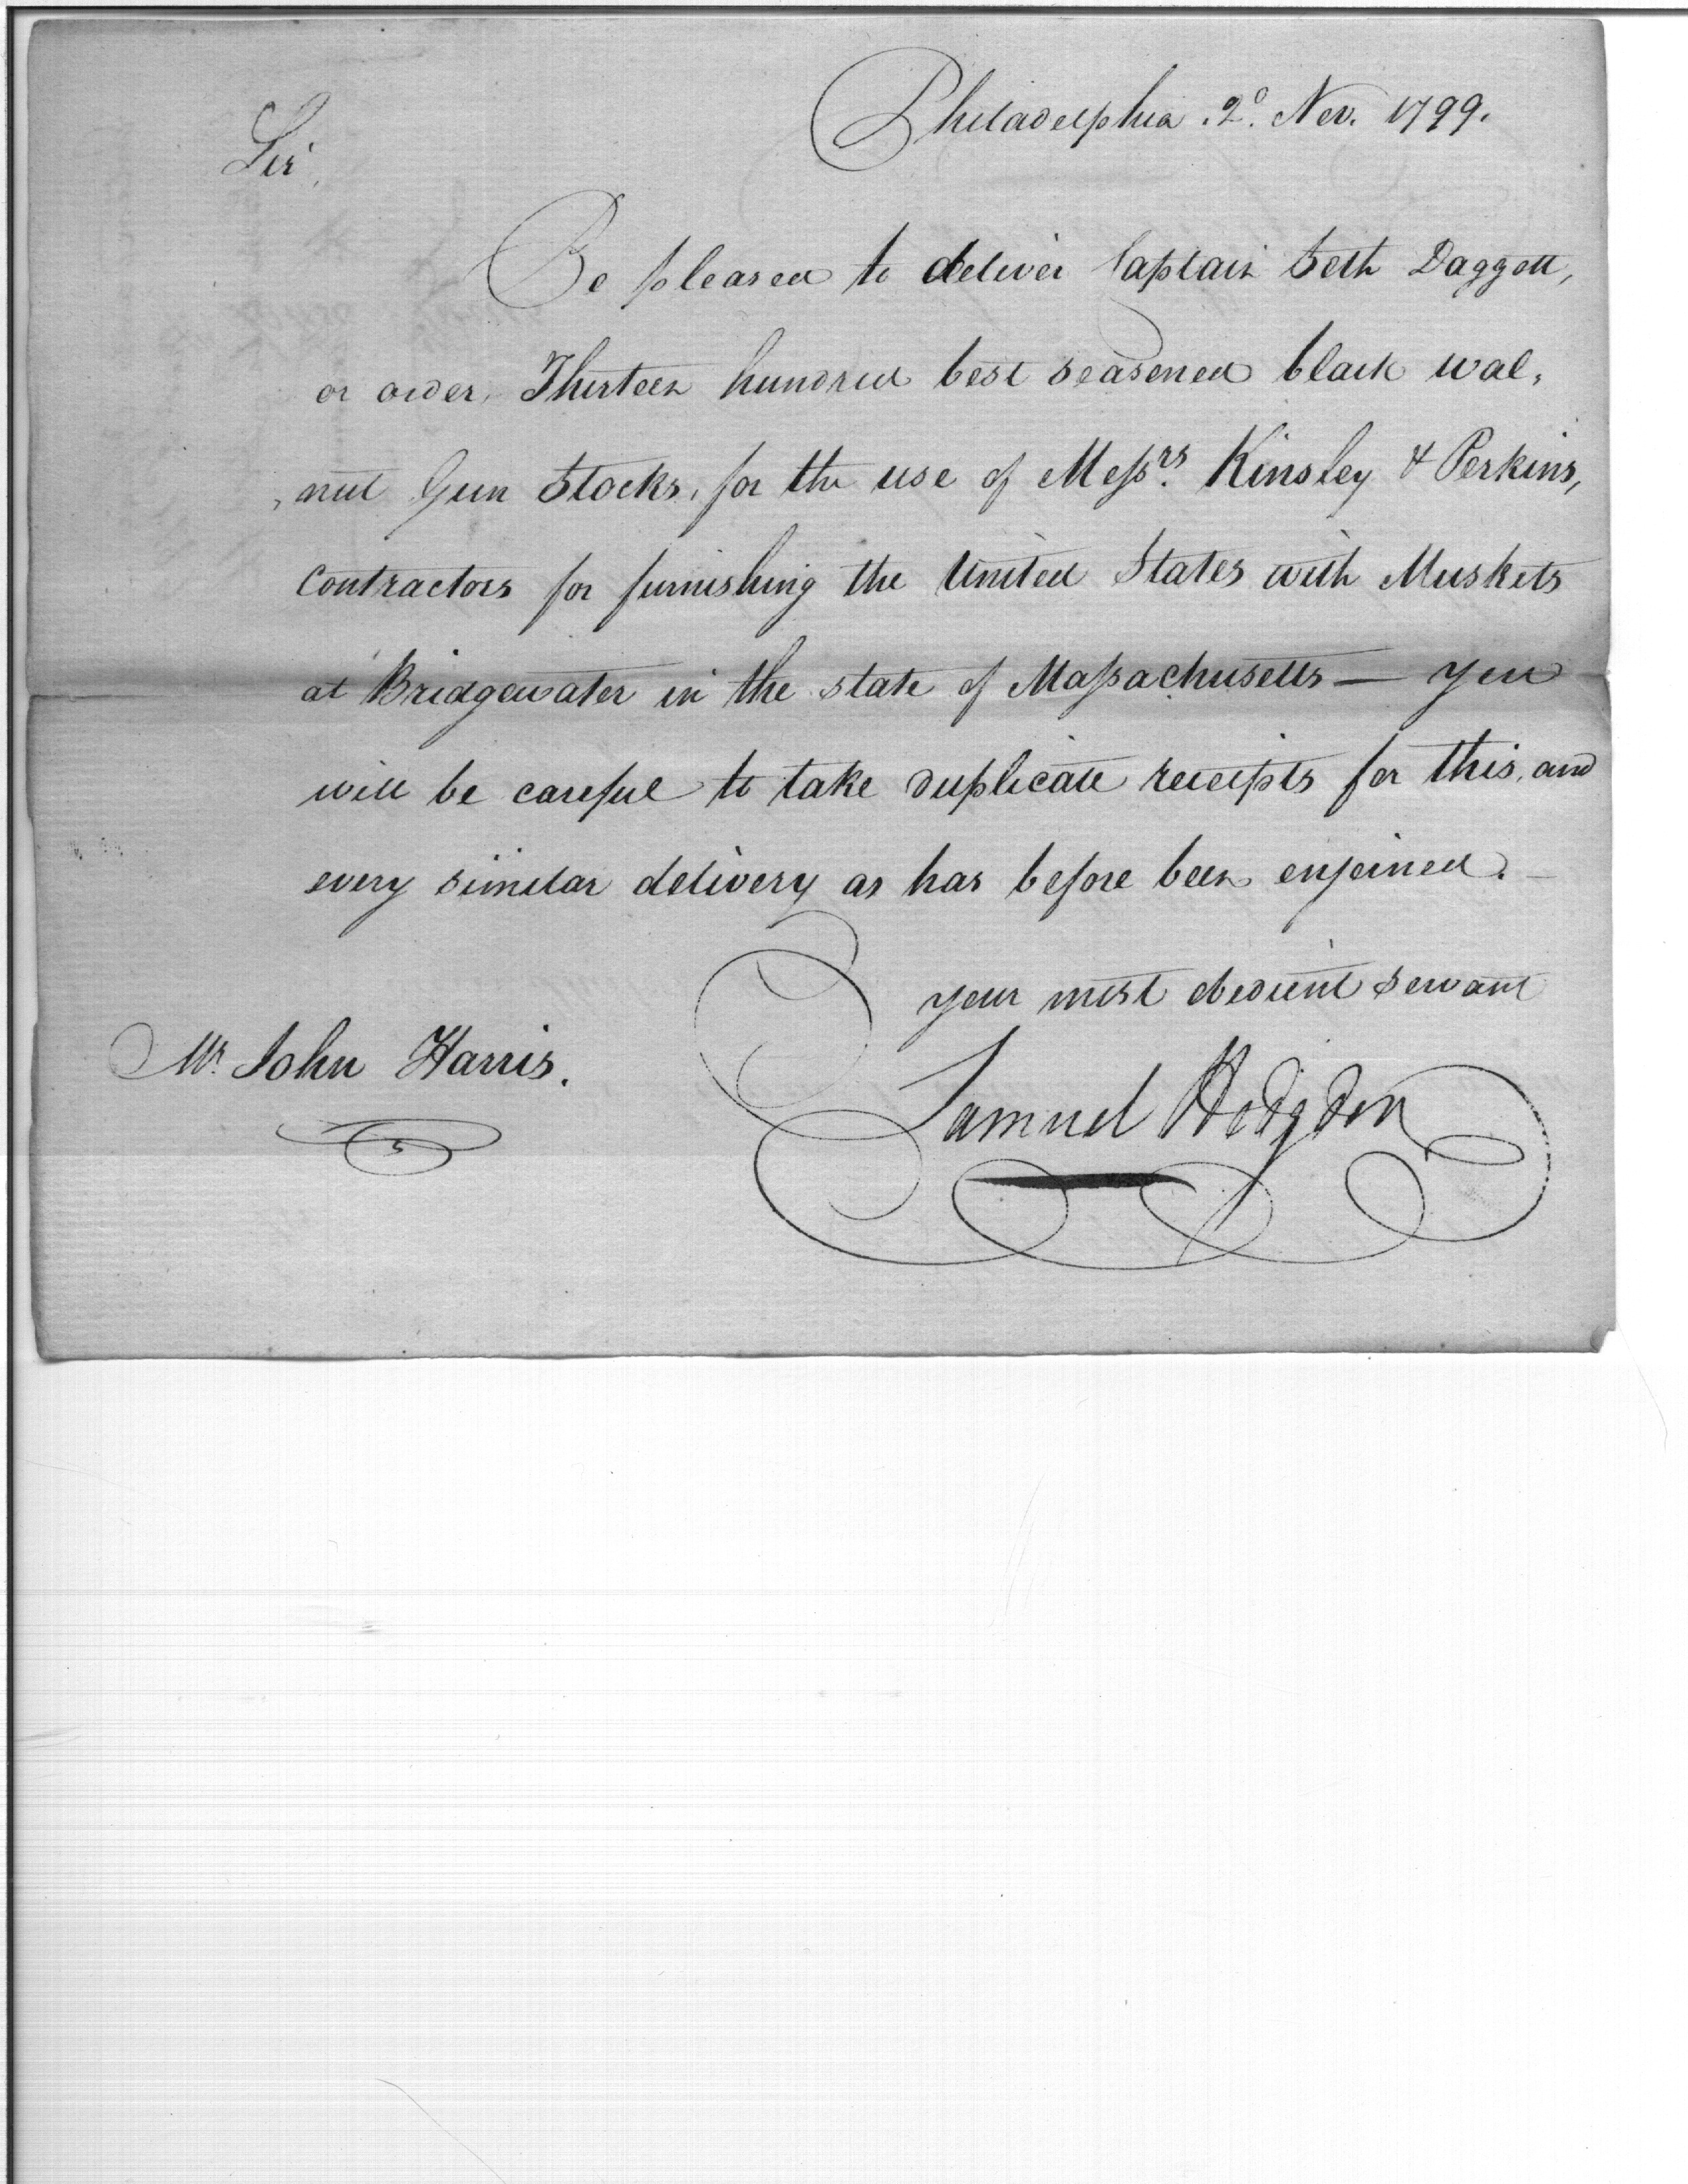 Philadelphia .2º. Nov. 1799.
Sir,
Be pleased to deliver Captain Seth Daggett,
or order, Thirteen hundred best seasoned black wal,
,nut Gun Stocks, for the use of Messrs. Kinsley & Perkins,
Contractors for furnishing the United States with Muskets
at Bridgewater in the state of Massachusetts — you
will be careful to take duplicate receipts for this, and
every similar delivery as has before been enjoined. —
your most obedient servant
Mr. John Harris.
Samuel Hodgdon